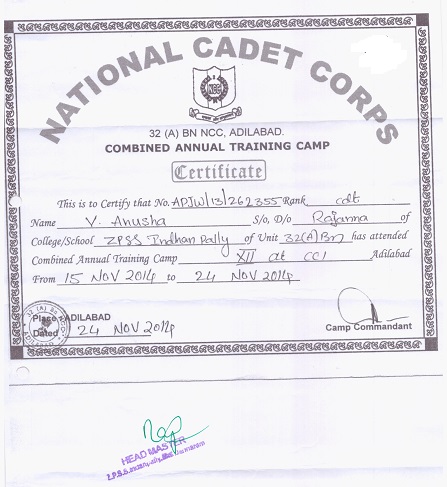 NATIONAL CADET CORPS
NCC
32 (A) BN NCC, ADILABAD.
COMBINED ANNUAL TRAINING CAMP
Certificate
This is to Certify that No. APJW/13/262355 Rank cdt
Name V. Anusha S/o, D/o Rajanna of
College/School ZPSS Indhanpally of Unit 32(A) Bn has attended
Combined Annual Training Camp XII at CCI Adilabad
From 15 NOV 2014 to 24 NOV 2014
Place ADILABAD
Dated 24 NOV 2014
Camp Commandant
HEAD MASTER